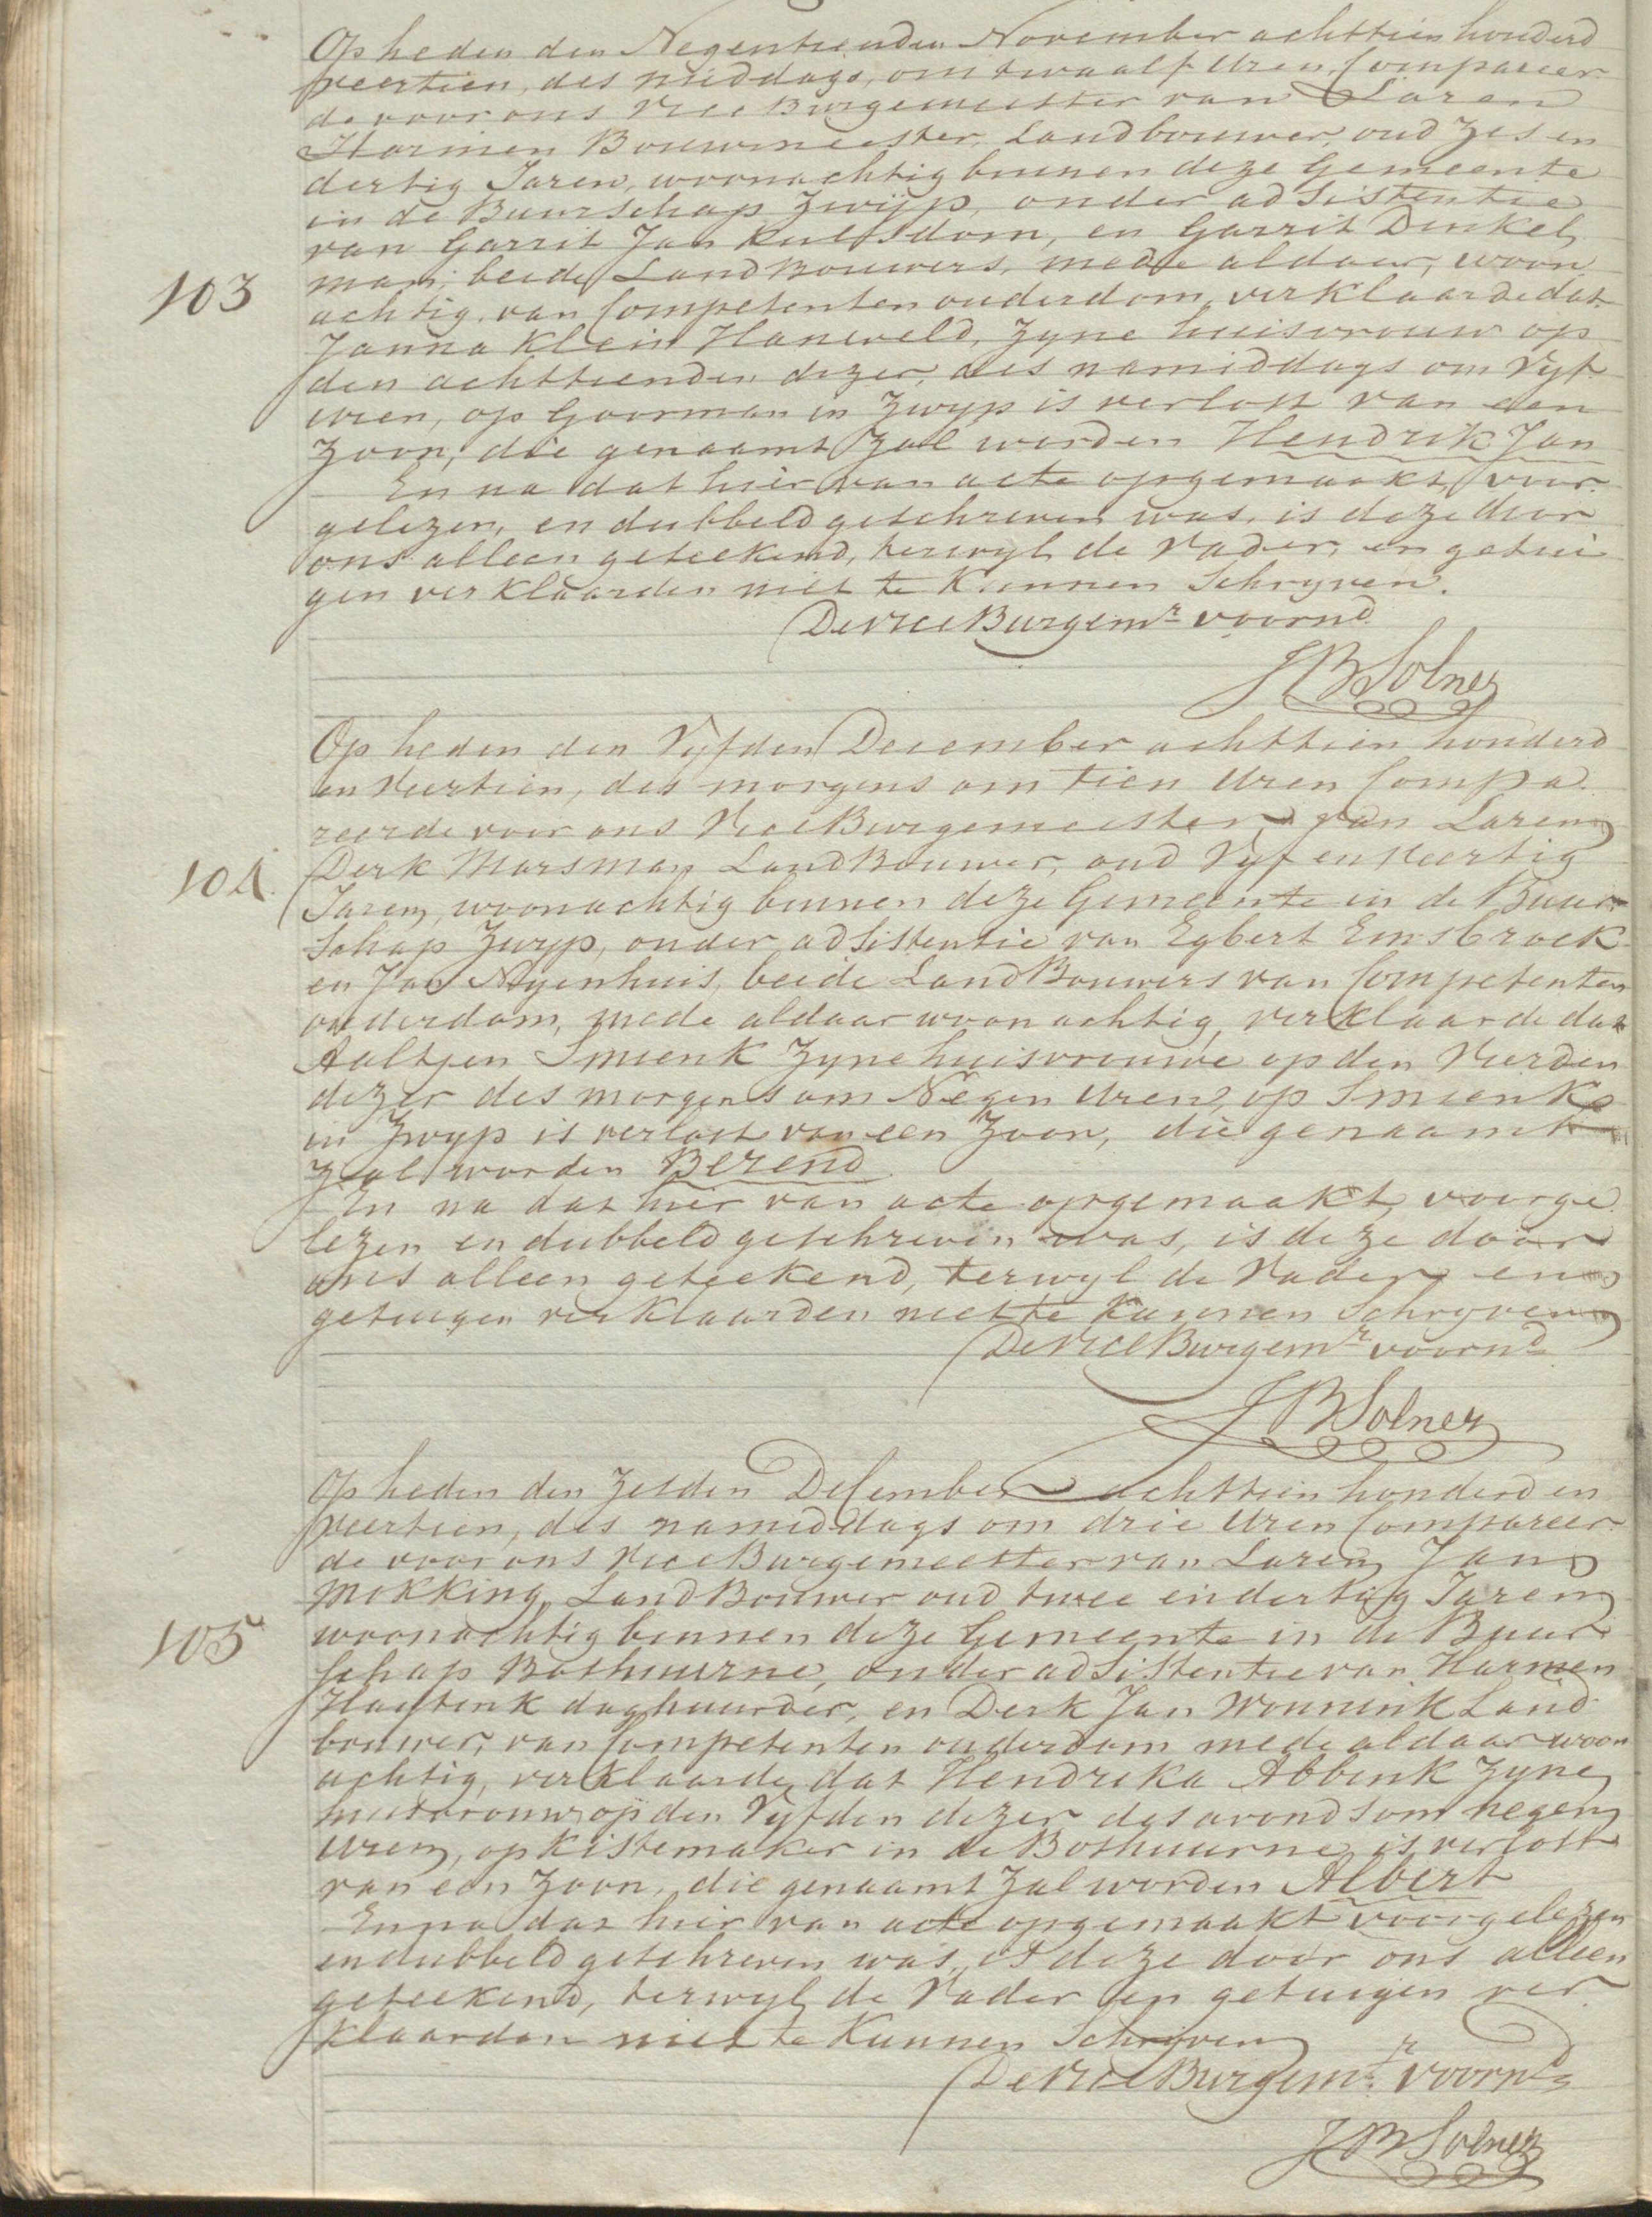 Op heden den Negentienden November achttien honderd
veertien, des middags, om twaalf Uren, Compareer
de voor ons Vice Burgemeester van Laren
Harmen Bouwmeester, Landbouwer, oud Zes en
dertig Jaren, woonachtig binnen deze Gemeente
in de Buurschap Zwijp, onder adsistentie
van Garrit Jan Kulsdom, en Garrit Dinkel
man, beide LandBouwers, mede aldaar, woon
103
achtig, van Competenten ouderdom, verklaarde dat
Janna Klein Haneveld, Zyne huisvrouw op
den achttienden dezer, des namiddags om Vyf
uren, op Goorman in Zwyp is verlost van een
Zoon, die genaamt Zal worden Hendrik Jan
En na dat hier van acte opgemaakt, voor
gelezen, en dubbeld geschreven was, is deze door
ons alleen geteekend, terwyl de Vader, en getui
gen verklaarden niet te Kunnen Schryven.
De Vice Burgemr voornd
JB Solner
Op heden den Vyfden December achttien honderd
en Veertien, des morgens om tien Uren Compa
reerde voor ons Vice Burgemeester van Laren
104.
Derk Marsman LandBouwer, oud Vyf en Veertig
Jaren, woonachtig binnen deze Gemeente in de Buur
Schap Zwyp, onder adsistentie van Egbert Emsbroek
en Jan Nyenhuis, beide LandBouwers van Competenten
ouderdom, mede aldaar woonachtig, verklaarde dat
Aaltjen Smienk Zyne huisvrouwe op den Vierden
dezer des morgens om Negen Uren, op Smienk
in Zwyp is verlost van een Zoon, die genaamt
Zal worden Berend
En na dat hier van acte opgemaakt, voorge
lezen en dubbeld geschreven was, is deze door
ons alleen geteekend, terwyl de Vader en
getuigen verklaarden niet te Kunnen Schryven
De Vice Burgemr voornd
JB Solner
Op heden den Zesden December achttien honderd en
veertien, des namiddags om drie Uren Compareer
de voor ons Vice Burgemeester van Laren Jan
Mokking, LandBouwer oud twee en dertig Jaren
105
woonachtig binnen deze Gemeente in de Buur
schap Bothuurne, onder adsistentie van Harmen
daghuurder, en Derk Jan Wonnink Land
bouwer, van Competenten ouderdom mede aldaar woon
achtig, verklaarde, dat Hendrika Abbink Zyne
huisvrouw op den Vyfden dezer des avonds om negen
Uren, op Kistemaker in de Bothuurne, is verlost
van een Zoon, die genaamt Zal worden Albert
En na dat hier van acte opgemaakt voorgelezen
en dubbeld geschreven was, is deze door ons alleen
geteekend, terwyl de Vader en getuigen ver
klaarden niet te Kunnen Schrijven
De Vice Burgemr. voornd
JB Solner